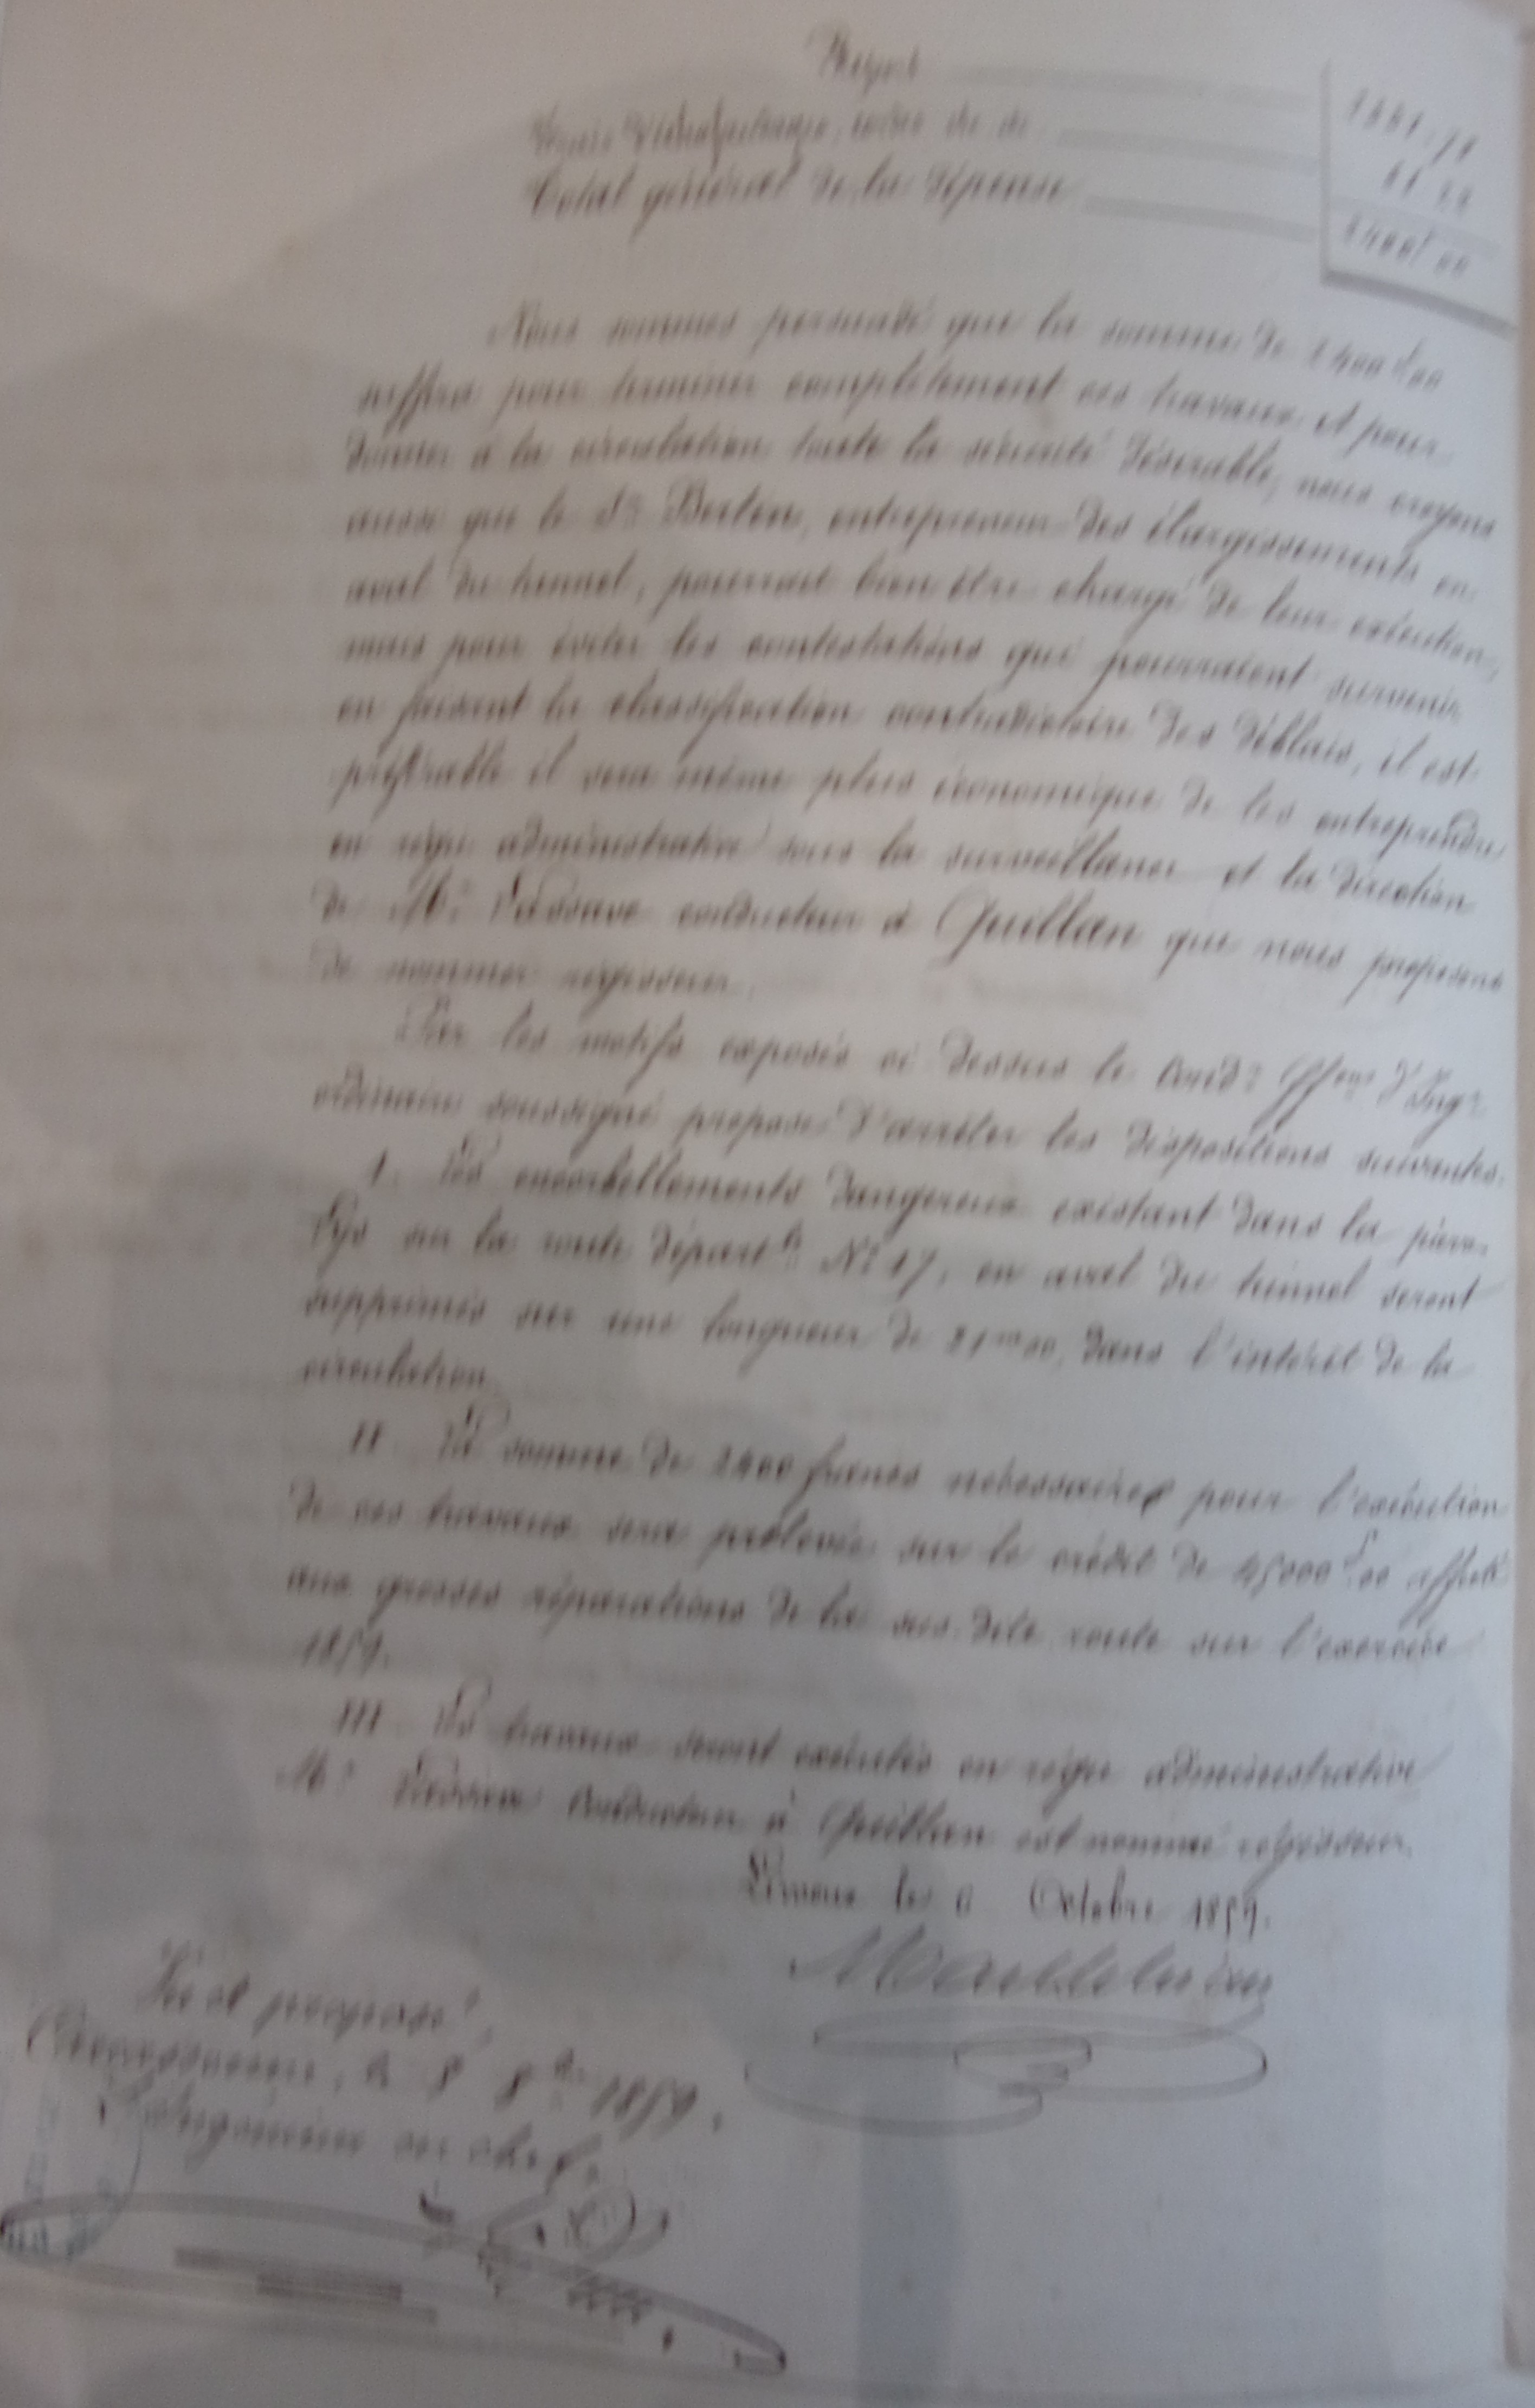 Report
Total général de la dépense
Nous sommes persuadé que la somme de 2400f00
suffira pour terminer complètement ces travaux et pour
donner à la circulation toute la sécurité désirable, nous croyons
aussi que le Sr entrepreneur des élargissements en
aval du tunnel, pourrait bien être chargé de leur exécution,
mais pour éviter les contestations qui pourraient survenir
en faisant la classification contradictoire des déblais, il est
préférable il sera même plus économique de les entreprendre
en régie administrative sous la surveillance et la direction
de Mr conducteur à Quillan que nous proposons
de nommer régisseur.
Par les motifs exposés ci dessus le Condr ffons d'Ingr
ordinaire soussigné propose d'arrêter les dispositions suivantes.
I. Les encorbellements dangereux existant dans la pierre
Lys sur la route départle No 17, en aval du tunnel seront
supprimés sur une longueur de 21m00, dans l'intérêt de la
circulation
II. La somme de 2400 francs nécessaires pour l'exécution
de ces travaux sera prélevée sur le crédit de 45000f00 affecté
aux grosses réparations de la sus-dite route sur l'exercice
1859.
III. Les travaux seront exécutés en régie administrative
Mr Conducteur à Quillan est nommé régisseur.
Limoux le 6 Octobre 1859.
Vu et proposé,
Carcassonne, le 8 8bre 1859.
L'Ingénieur en chef,